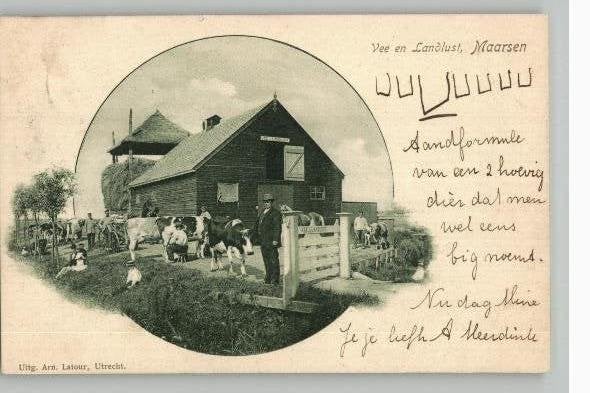 Vee en Landlust, Maarsen
Aandformule
van een 2 hoevig
dier dat men
wel eens
big noemt.
Nu dag Mine
Je je liefh A
Uitg. Arn. Latour, Utrecht.